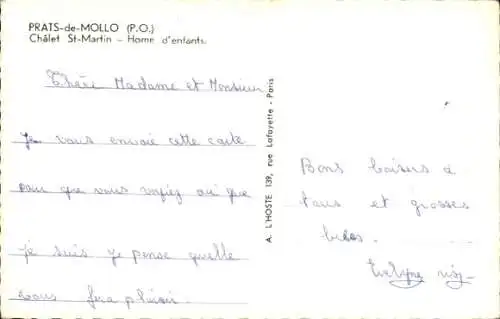 PRATS-de-MOLLO (P.O.)
Châlet St-Martin - Home d'enfants.
Chère Madame et Monsieur
Je vous envoie cette carte
pour que vous voyiez où que
je suis je pense quelle
vous fera plaisir.
A. L'HOSTE 139, rue Lafayette - Paris
Bons baisers à
tous et grosses
bises.
Evelyne